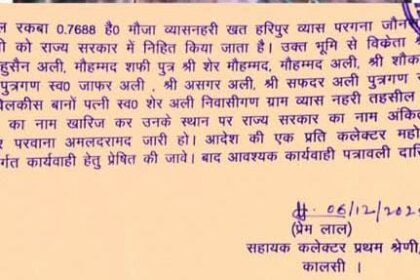 ल रकबा 0.7688 है0 मौजा व्यासनहरी खत हरिपुर व्यास परगना जौन
ी को राज्य सरकार में निहित किया जाता है। उक्त भूमि से विक्रेता
हुसैन अली, मौहम्मद शफी पुत्र श्री शेर मौहम्मद, मौहम्मद अली, श्री शौक
पुत्रगण स्व0 जाफर अली , श्री असगर अली, श्री सफदर अली पुत्रगण
वेलकीस बानों पत्नी स्व0 शेर अली निवासीगण ग्राम व्यास नहरी तहसील
का नाम खारिज कर उनके स्थान पर राज्य सरकार का नाम अंकि
र परवाना अमलदरामद जारी हो। आदेश की एक प्रति कलेक्टर महो
र्गत कार्यवाही हेतु प्रेषित की जावे। बाद आवश्यक कार्यवाही पत्रावली दारि
06/12/202
(प्रेम लाल)
सहायक कलेक्टर प्रथम श्रेणी,
कालसी ।